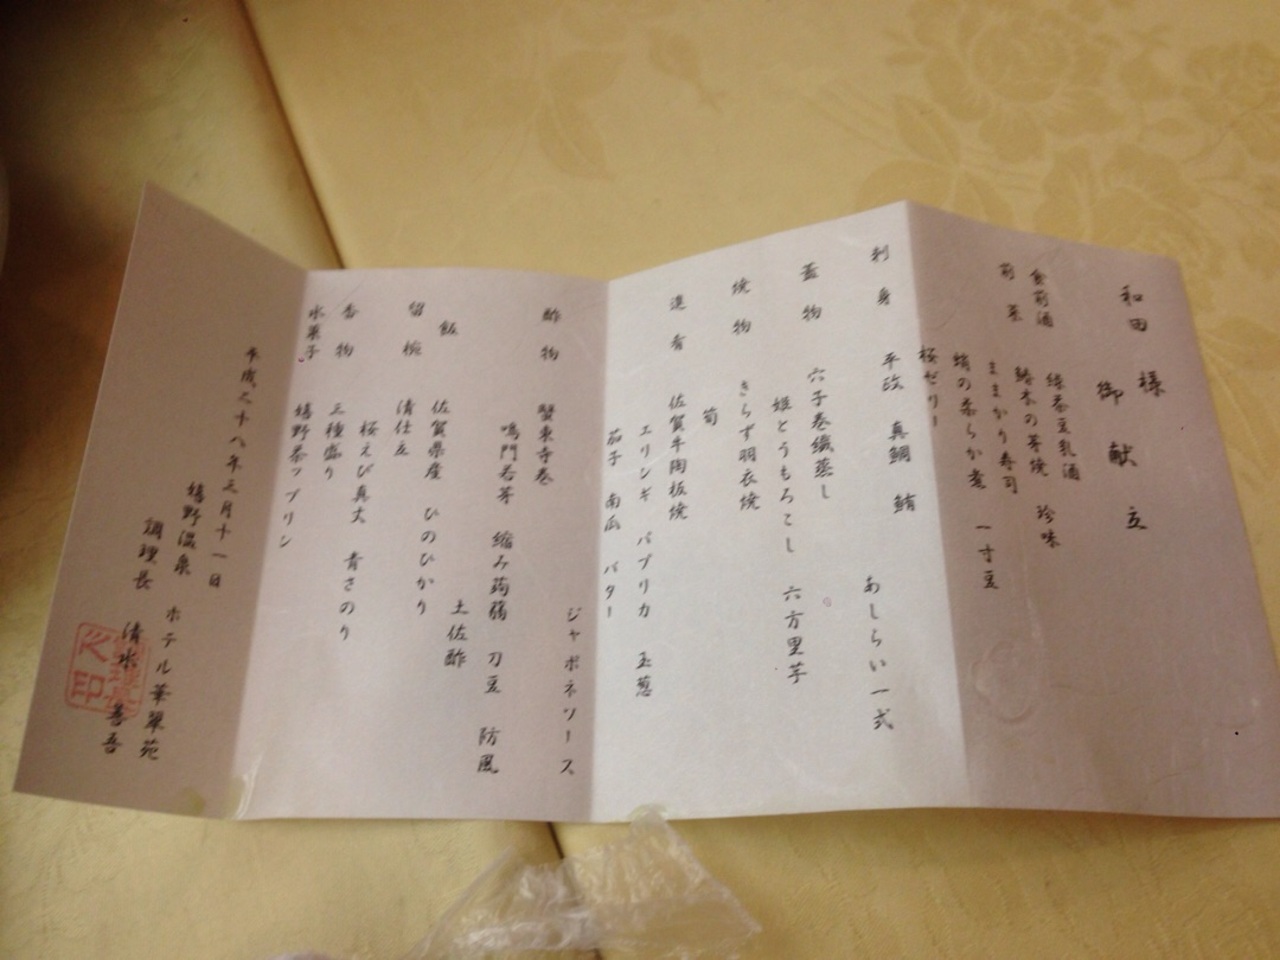 和田 様
御献立
食前酒 緑茶豆乳酒
前菜 鰆木の芽焼 珍味
ままかり寿司
蛸の柔らか煮 一寸豆
桜ゼリー
刺身 平政 真鯛 鮪
あしらい一式
蓋物 穴子巻繊蒸し
姫とうもろこし 六方里芋
焼物 きらず羽衣焼
筍
進肴 佐賀牛陶板焼
エリンギ パプリカ 玉葱
茄子 南瓜 バター
ジャポネソース
酢物 蟹東寺巻
鳴門若芽 縮み蒟蒻 刀豆 防風
土佐酢
飯 佐賀県産 ひのひかり
留椀 清仕立
桜えび真丈 青さのり
香物 三種盛り
水菓子 嬉野茶プリン
平成二十八年三月十一日
嬉野温泉 ホテル華翠苑
調理長 清水 善吾